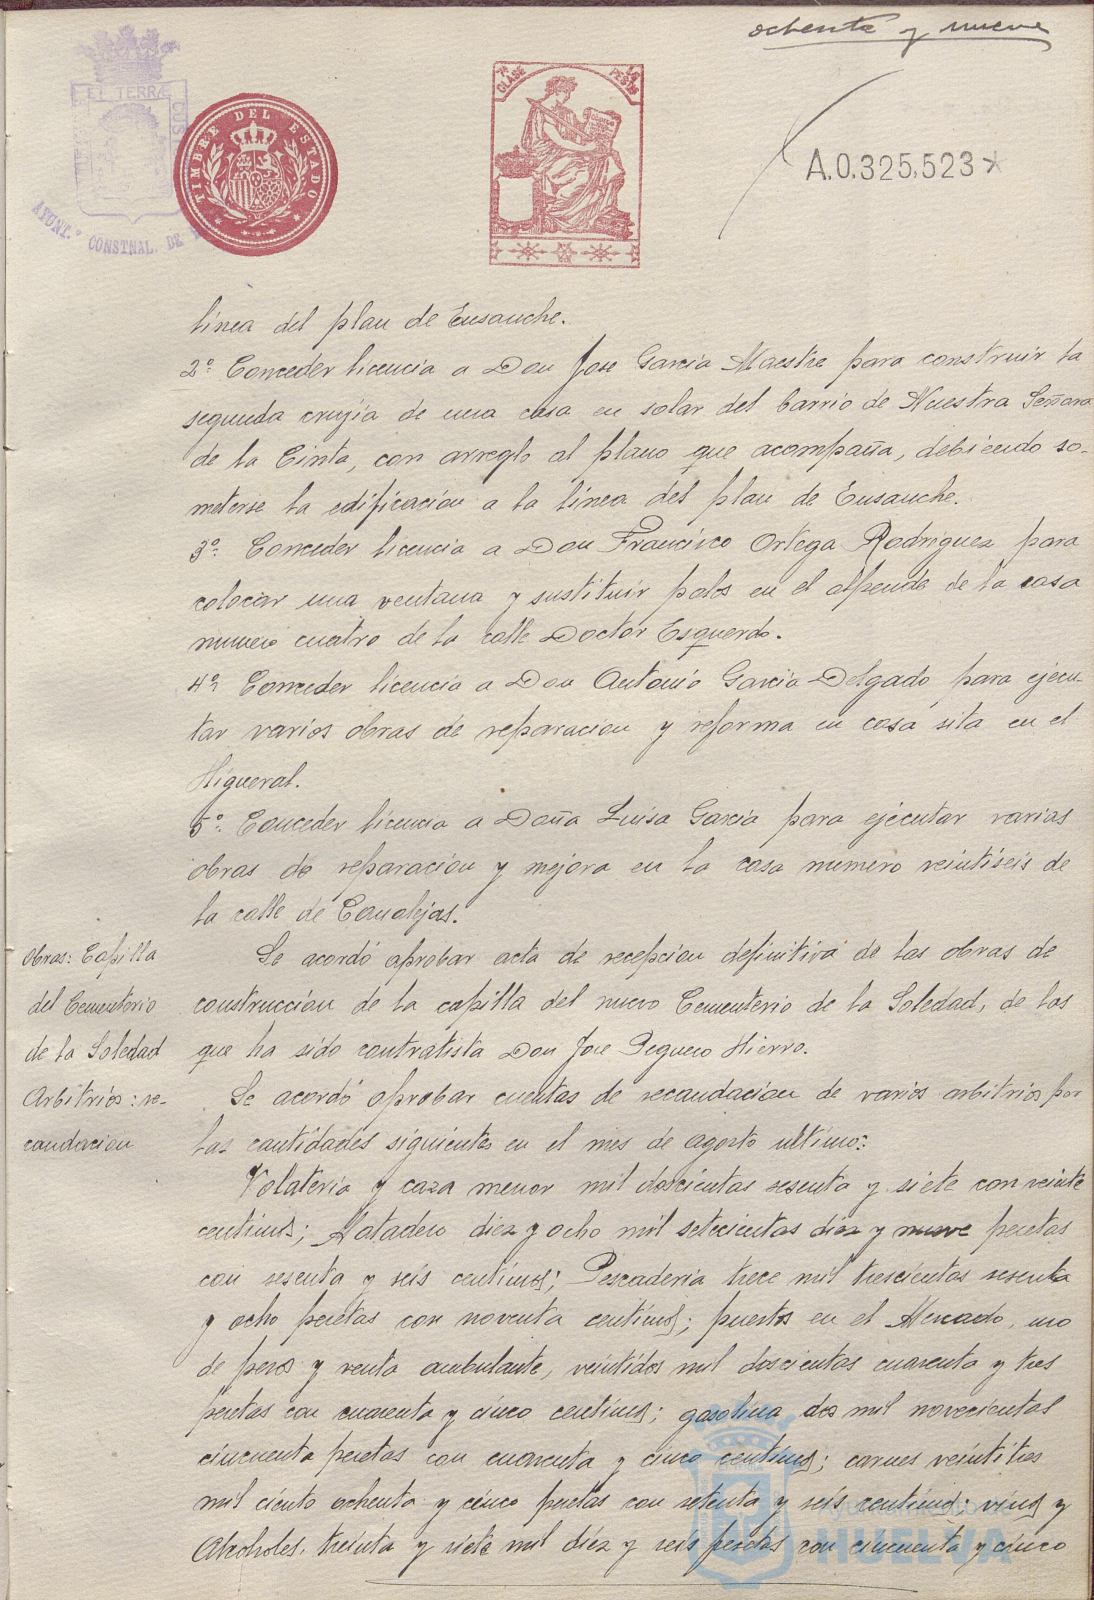 ochenta y nueve
ET TERRÆ CUS
AYUNT.º CONSTNAL. DE
TIMBRE DEL ESTADO
7ª CLASE PESTS
A.0.325,523*
línea del plan de Ensanche.
2º Conceder licencia a Don Jose Garcia Maestre para construir la
segunda crujía de una casa en solar del barrio de Nuestra Señora
de la Cinta, con arreglo al plano que acompaña, debiendo so-
meterse la edificacion a la línea del plan de Ensanche.
3º Conceder licencia a Don Francisco Ortega Rodriguez para
colocar una ventana y sustituir palos en el alpende de la casa
numero cuatro de la calle Doctor Esquerdo.
4º Conceder licencia a Don Antonio Garcia Delgado para ejecu-
tar varios obras de reparacion y reforma en casa sita en el
Higueral.
5º Conceder licencia a Doña Luisa Garcia para ejecutar varias
obras de reparacion y mejora en la casa numero veintiseis de
la calle de Canalejas.
Obras: Capilla
del Cementerio
de la Soledad
Se acordó aprobar acta de recepcion definitiva de las obras de
construccion de la capilla del nuevo Cementerio de la Soledad, de las
que ha sido contratista Don Jose Peguero Hierro.
Arbitrios: re-
caudacion
Se acordó aprobar cuentas de recaudacion de varios arbitrios por
las cantidades siguientes en el mes de agosto ultimo:
Volateria y caza menor mil doscientas sesenta y siete con veinte
centimos; Matadero diez y ocho mil setecientas diez y nueve pesetas
con sesenta y seis centimos; Pescaderia trece mil trescientas sesenta
y ocho pesetas con noventa centimos; puertos en el Mercado, uso
de pesos y venta ambulante, veintidos mil doscientas cuarenta y tres
pesetas con cuarenta y cinco centimos; gasolina dos mil novecientas
cincuenta pesetas con cuarenta y cinco centimos; carnes veintitres
mil ciento ochenta y cinco pesetas con setenta y seis centimos; vinos y
Alcoholes, treinta y siete mil diez y seis pesetas con cincuenta y cinco
Ayuntamiento de
HUELVA